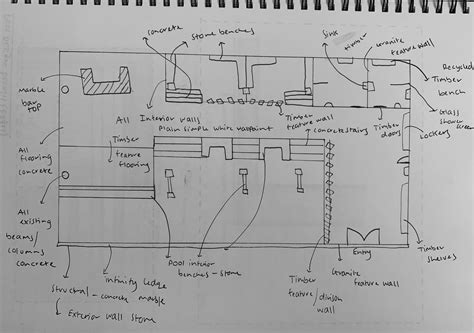 concrete
stone benches
Sink
timber
Granite
feature wall
Recycled
Timber
bench
Glass
shower
screen
Lockers
Marble
bar
TOP
All Interior walls
Plain simple white wallpaint
Timber
feature wall
concrete stairs
Timber
doors
Timber
feature
flooring
All
flooring
concrete
All
existing
beams/
columns
concrete
Timber
shelves
Entry
Granite
feature wall
Timber
feature/divison
wall
Pool interior
benches - stone
Infinity ledge
- concrete marble
Structural
Exterior wall stone